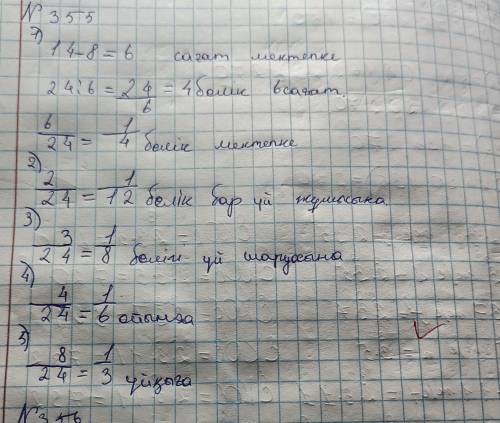 N 355
1)
14-8=6 сағат мектепке
24:6 = 24/6 = 4 бөлік 6 сағат
6/24 = 1/4 бөлік мектепке
2)
2/24 = 1/12 бөлік бар үй жұмысына
3)
3/24 = 1/8 бөлігі үй шаруасына
4)
4/24 = 1/6 ойынға
5)
8/24 = 1/3 ұйқыға
N 356